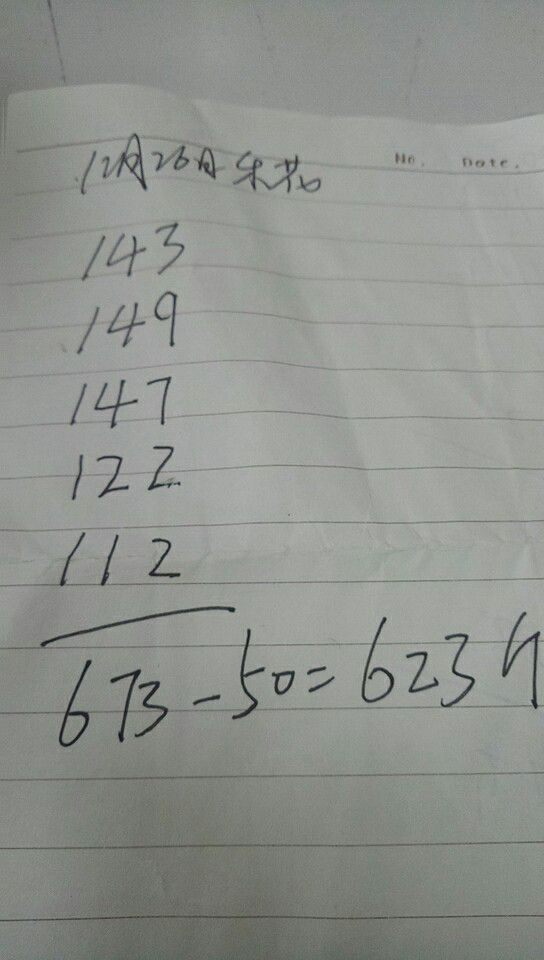 12月26日 朱花
No. Date.
143
149
147
122
112
673-50=623斤